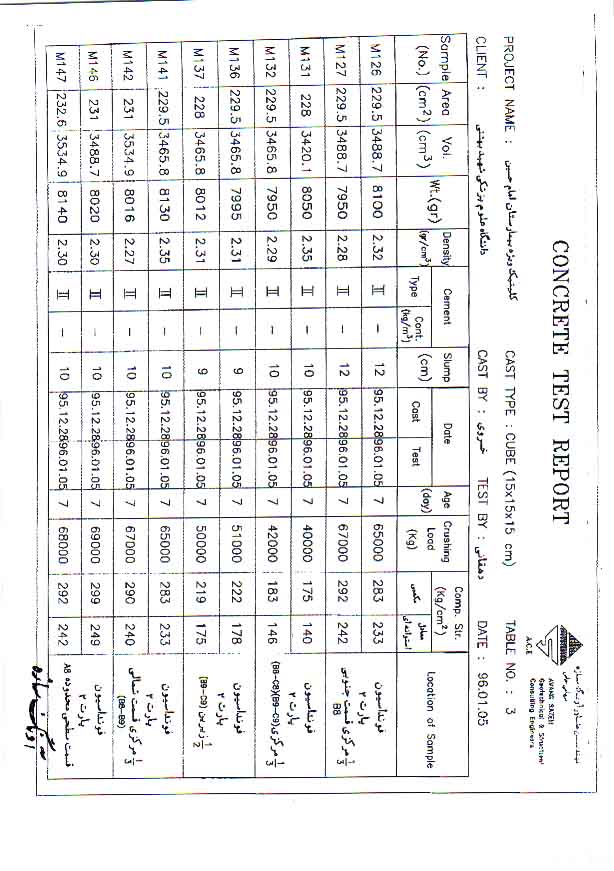 CONCRETE TEST REPORT
مهندسین مشاور آونگ سازه
A.C.E
AVANG SAZEH
Geotechnical & Structural
Consulting Engineers
PROJECT NAME : کلینیک ویژه بیمارستان امام حسین CAST TYPE : CUBE (15x15x15 cm) TABLE NO. : 3
CLIENT : دانشگاه علوم پزشکی شهید بهشتی CAST BY : خسروی TEST BY : دهقانی DATE : 96.01.05
Sample (No.) Area (cm2) Vol. (cm3) Wt.(gr) Density (gr/cm3) Cement Type Cont. (kg/m3) Slump (cm) Date Cast Test Age (day) Crushing Load (Kg) Comp. Str. (Kg/cm2) مکعبی معادل استوانه‌ای Location of Sample
M126 229.5 3488.7 8100 2.32 II - 12 95.12.28 96.01.05 7 65000 283 233 فونداسیون پارت ۲
M127 229.5 3488.7 7950 2.28 II - 12 95.12.28 96.01.05 7 67000 292 242 1/3 مرکزی قسمت جنوبی B8
M131 228 3420.1 8050 2.35 II - 10 95.12.28 96.01.05 7 40000 175 140 فونداسیون پارت ۲
M132 229.5 3465.8 7950 2.29 II - 10 95.12.28 96.01.05 7 42000 183 146 1/3 مرکزی (B8-C8)(B9-C9)
M136 229.5 3465.8 7995 2.31 II - 9 95.12.28 96.01.05 7 51000 222 178 فونداسیون پارت ۲
M137 228 3465.8 8012 2.31 II - 9 95.12.28 96.01.05 7 50000 219 175 1/2 زیرین (B9-C9)
M141 229.5 3465.8 8130 2.35 II - 10 95.12.28 96.01.05 7 65000 283 233 فونداسیون پارت ۲
M142 231 3534.9 8016 2.27 II - 10 95.12.28 96.01.05 7 67000 290 240 1/3 مرکزی قسمت شمالی (B8-B9)
M146 231 3488.7 8020 2.30 II - 10 95.12.28 96.01.05 7 69000 299 249 فونداسیون پارت ۲
M147 232.6 3534.9 8140 2.30 II - 10 95.12.28 96.01.05 7 68000 292 242 قسمت محدوده A8